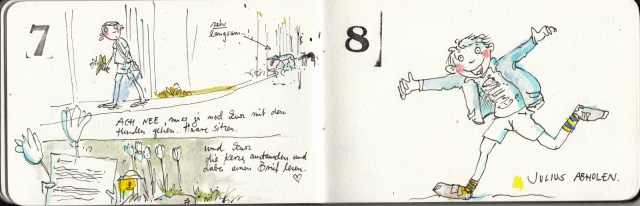 7
sehr
langsam!
ACH NEE, muss ja noch kurz mit den
Hunden gehen. Haare sitzen.
und kurz
die Kerze anzünden und
dabei einen Brief lesen.
8
JULIUS ABHOLEN.